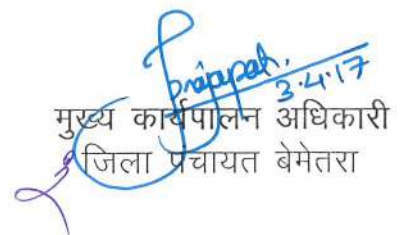 prajapati.
3.4.17
मुख्य कार्यपालन अधिकारी
जिला पंचायत बेमेतरा